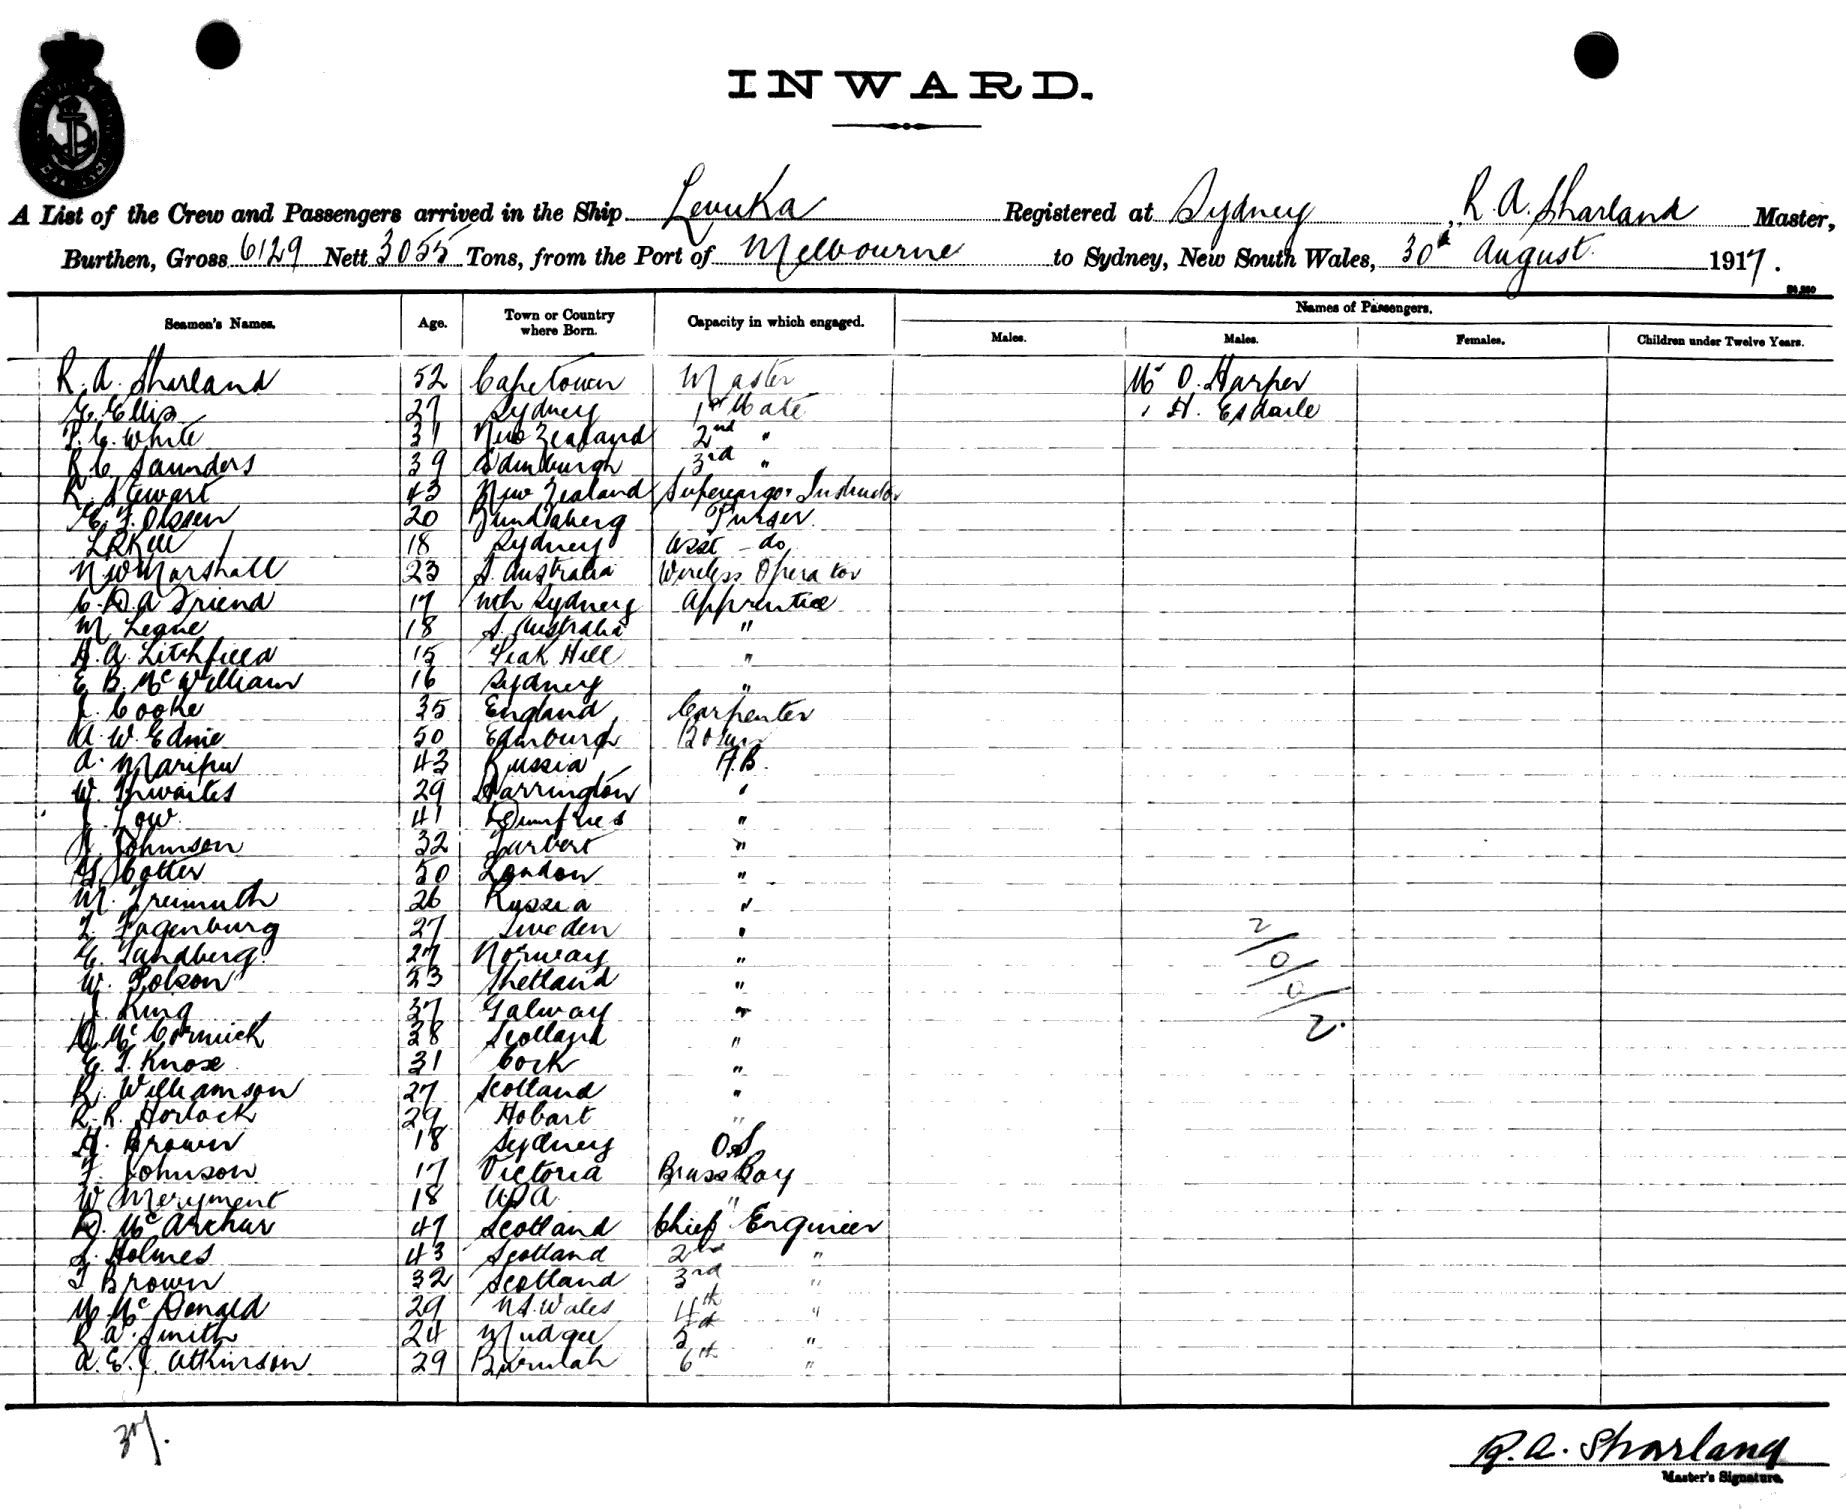 INWARD.
A List of the Crew and Passengers arrived in the Ship Levuka Registered at Sydney, R. A. Sharland Master,
Burthen, Gross 6129 Nett 3055 Tons, from the Port of Melbourne to Sydney, New South Wales, 30th August 1917.
Seamen's Names. Age. Town or Country where Born. Capacity in which engaged. Names of Passengers.
Males. Males. Females. Children under Twelve Years.
R. A. Sharland 52 Capetown Master Mr O. Harper
G. Ellis 27 Sydney 1st Mate " H. Esdaile
P. C. White 31 New Zealand 2nd "
R. C. Saunders 39 Edinburgh 3rd "
R. Stewart 43 New Zealand Supercargo Instructor
20 Bundaberg Purser
18 Sydney Asst do
N W Marshall 23 S. Australia Wireless Operator
C. D. A Friend 17 Nth Sydney Apprentice
M Leane 18 S. Australia "
H. A. Litchfield 15 Peak Hill "
E B. McWilliam 16 Sydney "
J. Cooke 35 England Carpenter
A. W. Ednie 50 Edinburgh Bosun
A. 43 Russia A.B.
W. Thwaites 29 Harrington "
J. Low 41 Dumfries "
Johnson 32 Tarbert "
Cotter 50 London "
M. Freimuth 26 Russia "
Fagenburg 27 Sweden "
Sandberg 27 Norway "
W. Polson 53 Shetland "
J. King 37 Galway "
D. McCormick 28 Scotland "
E. J. Knox 31 Cork "
R. Williamson 27 Scotland "
R. R. Horlock 29 Hobart "
H. Brown 18 Sydney O.S.
F. Johnson 17 Victoria Brass Boy
W Meryment 18 USA "
D. McArthur 47 Scotland Chief Engineer
Holmes 43 Scotland 2nd "
Brown 32 Scotland 3rd "
McDonald 29 N.S. Wales 4th "
R. A. Smith 24 Mudgee 5th "
A. E. J. Atkinson 29 Burmah 6th "
2/0/0/2.
37.
R. A. Sharland
Master's Signature.